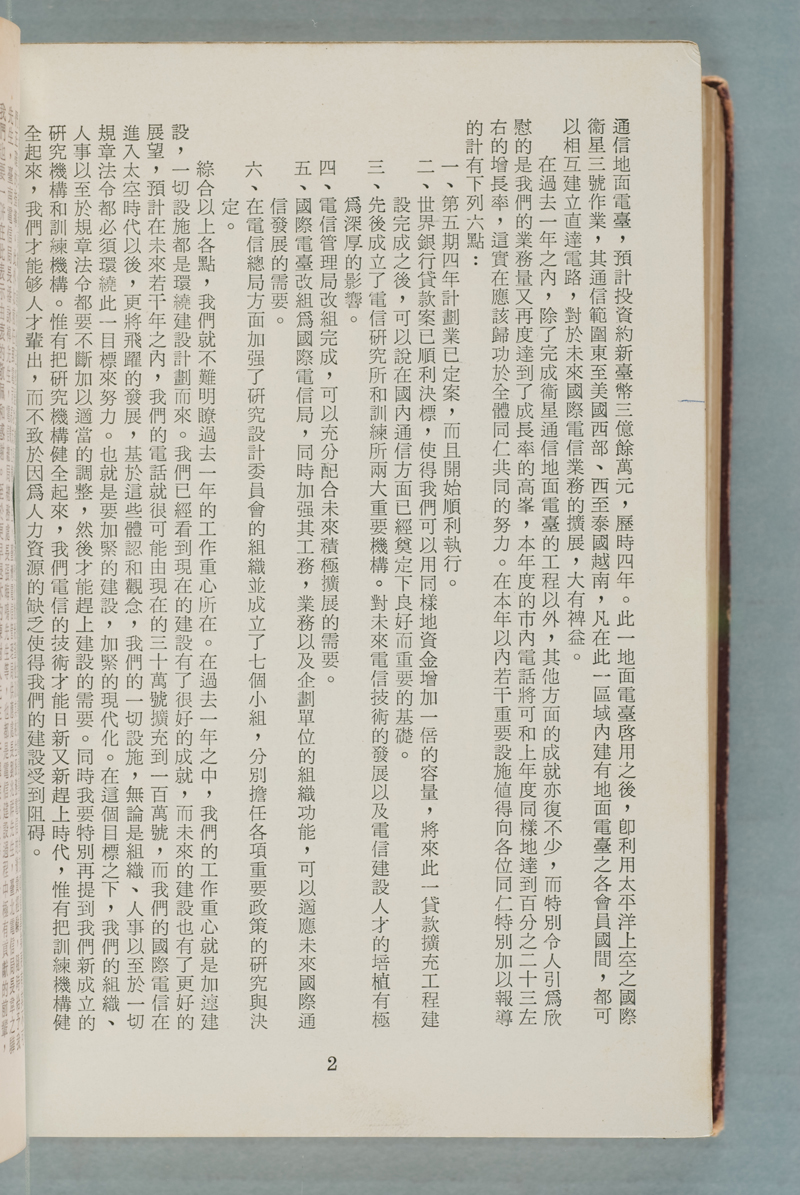 通信地面電臺，預計投資約新臺幣三億餘萬元，歷時四年。此一地面電臺啓用之後，卽利用太平洋上空之國際
衞星三號作業，其通信範圍東至美國西部、西至泰國越南，凡在此一區域內建有地面電臺之各會員國間，都可
以相互建立直達電路，對於未來國際電信業務的擴展，大有裨益。
在過去一年之內，除了完成衞星通信地面電臺的工程以外，其他方面的成就亦復不少，而特別令人引爲欣
慰的是我們的業務量又再度達到了成長率的高峯，本年度的市內電話將可和上年度同樣地達到百分之二十三左
右的增長率，這實在應該歸功於全體同仁共同的努力。在本年以內若干重要設施値得向各位同仁特別加以報導
的計有下列六點：
一、第五期四年計劃業已定案，而且開始順利執行。
二、世界銀行貸款案已順利決標，使得我們可以用同樣地資金增加一倍的容量，將來此一貸款擴充工程建
設完成之後，可以說在國內通信方面已經奠定下良好而重要的基礎。
三、先後成立了電信硏究所和訓練所兩大重要機構。對未來電信技術的發展以及電信建設人才的培植有極
爲深厚的影響。
四、電信管理局改組完成，可以充分配合未來積極擴展的需要。
五、國際電臺改組爲國際電信局，同時加强其工務，業務以及企劃單位的組織功能，可以適應未來國際通
信發展的需要。
六、在電信總局方面加强了硏究設計委員會的組織並成立了七個小組，分別擔任各項重要政策的硏究與決
定。
綜合以上各點，我們就不難明瞭過去一年的工作重心所在。在過去一年之中，我們的工作重心就是加速建
設，一切設施都是環繞建設計劃而來。我們已經看到現在的建設有了很好的成就，而未來的建設也有了更好的
展望，預計在未來若干年之內，我們的電話就很可能由現在的三十萬號擴充到一百萬號，而我們的國際電信在
進入太空時代以後，更將飛躍的發展，基於這些體認和觀念，我們的一切設施，無論是組織、人事以至於一切
規章法令都必須環繞此一目標來努力。也就是要加緊的建設，加緊的現代化。在這個目標之下，我們的組織、
人事以至於規章法令都要不斷加以適當的調整，然後才能趕上建設的需要。同時我要特別再提到我們新成立的
硏究機構和訓練機構。惟有把硏究機構健全起來，我們電信的技術才能日新又新趕上時代，惟有把訓練機構健
全起來，我們才能够人才輩出，而不致於因爲人力資源的缺乏使得我們的建設受到阻碍。
2